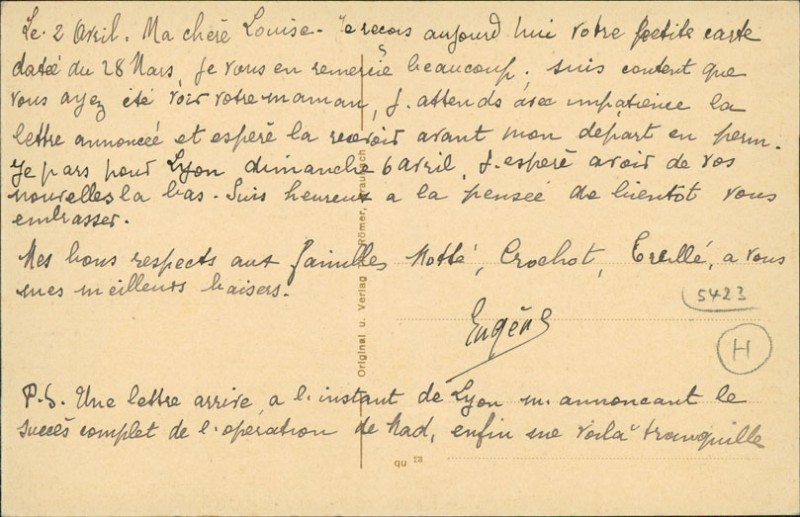 Le 2 Avril. Ma chère Louise. Je reçois aujourd hui votre petite carte
datée du 28 Mars, je vous en remercie beaucoup, suis content que
vous ayez été voir votre maman, J. attends avec impatience la
lettre annoncée et espère la recevoir avant mon départ en perm.
Je pars pour Lyon dimanche 6 avril, J. espère avoir de vos
nouvelles la bas. Suis heureux a la pensée de bientot vous
embrasser.
Mes bons respects aux familles Crochot, a vous
mes meilleurs baisers.
5423
Eugène
H
P.S. Une lettre arrive a l. instant de Lyon m. annoncant le
succès complet de l. operation de me voilà tranquille
Original u. Verlag Römer,
qu